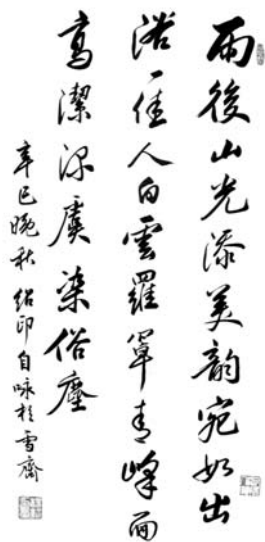 雨後山光添美韻宛如出
浴一佳人白雲羅罩青峰面
高潔深虞染俗塵
辛巳晚秋紹印自咏於雪齋